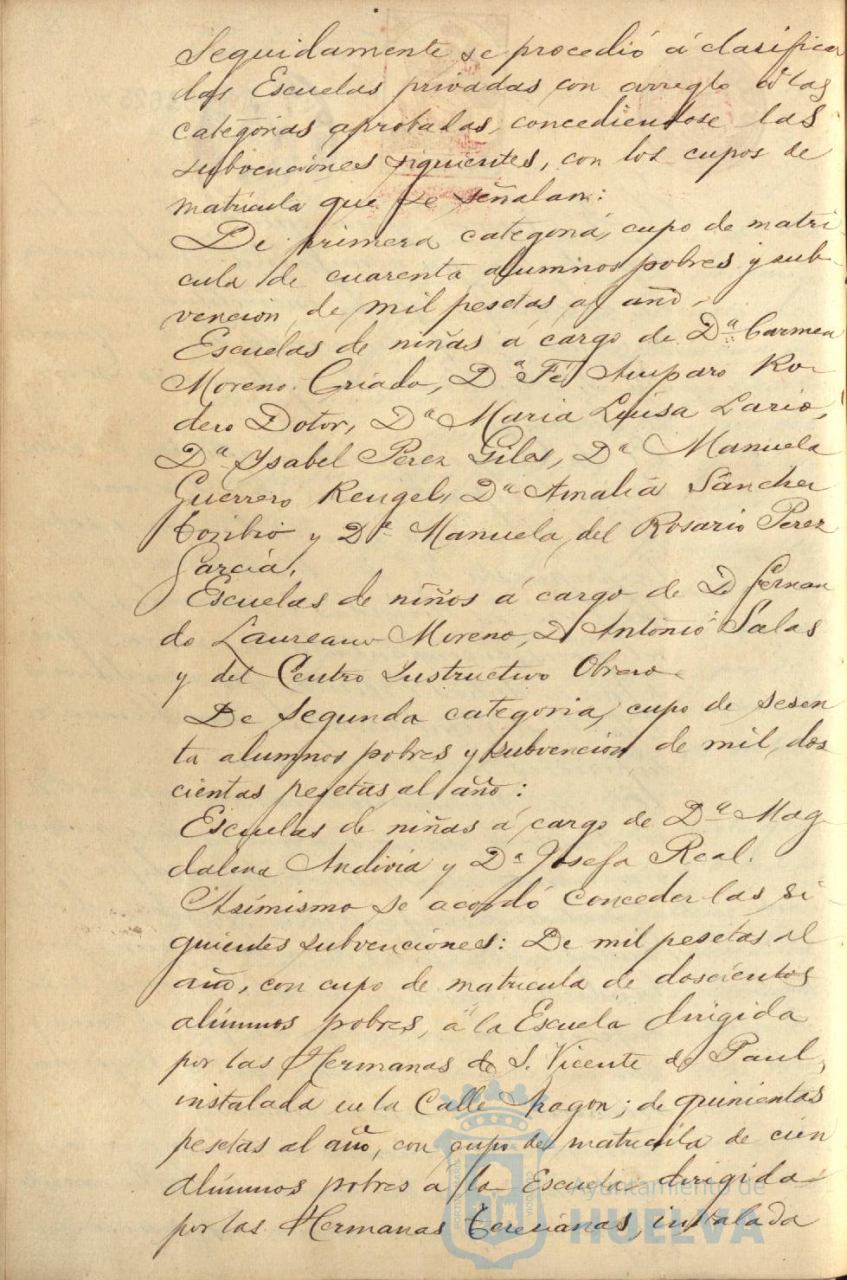 Seguidamente se procedió á clasificar
las Escuelas privadas con arreglo á las
categorias aprobadas, concediendose las
subvenciones siguientes, con los cupos de
matricula que se señalan:
De primera categoria, cupo de matri-
cula de cuarenta alumnos pobres y sub-
vencion de mil pesetas al año,
Escuelas de niñas á cargo de Dª Carmen
Moreno Criado, Dª Fé Amparo Ro-
dero Dotor, Dª Maria Luisa Lario,
Dª Ysabel Perez Giles, Dª Manuela
Guerrero Rengel, Dª Amalia Sánchez
Toribio y Dª Manuela del Rosario Perez
Garcia.
Escuelas de niños á cargo de D. Fernan
do Laureano Moreno, D. Antonio Salas
y del Centro Instructivo Obrero.
De Segunda categoria, cupo de sesen
ta alumnos pobres y subvencion de mil, dos
cientas pesetas al año:
Escuelas de niñas á cargo de Dª Mag-
dalena Andivia y Dª Josefa Real.
Asimismo se acordó conceder las si-
guientes subvenciones: De mil pesetas al
año, con cupo de matricula de doscientos
alumnos pobres, á la Escuela dirigida
por las Hermanas de S. Vicente de Paul,
instalada en la Calle Aragon; de quinientas
pesetas al año, con cupo de matricula de cien
alumnos pobres á la Escuela dirigida
por las Hermanas Teresianas, instalada
Ayuntamiento de
HUELVA